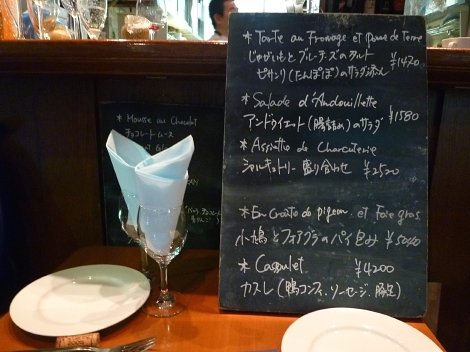 * Tarte au Fromage et Pomme de Terre
じゃがいもとブルーチーズのタルト
ピサンリ(たんぽぽ)のサラダ添え ¥1470
* Salade d'Andouillette
アンドゥイエット(腸詰め)のサラダ ¥1580
* Assiette de Charcuterie
シャルキュトリー盛り合わせ ¥2520
* En Croute de pigeon et foie gras
小鳩とフォアグラのパイ包み ¥5040
* Cassoulet ¥4200
カスレ(鴨コンフィ、ソーセージ、豚足)
* Mousse au Chocolat
チョコレートムース